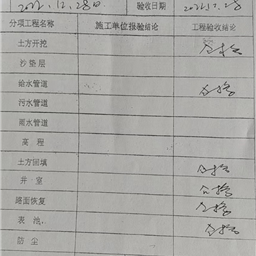 2022.12.28日 验收日期
分项工程名称 施工单位报验结论 工程验收结论
土方开挖 合格
沙垫层
给水管道 合格
污水管道
雨水管道
土方回填 合格
井室 合格
路面恢复 合格
表池 合格
防尘